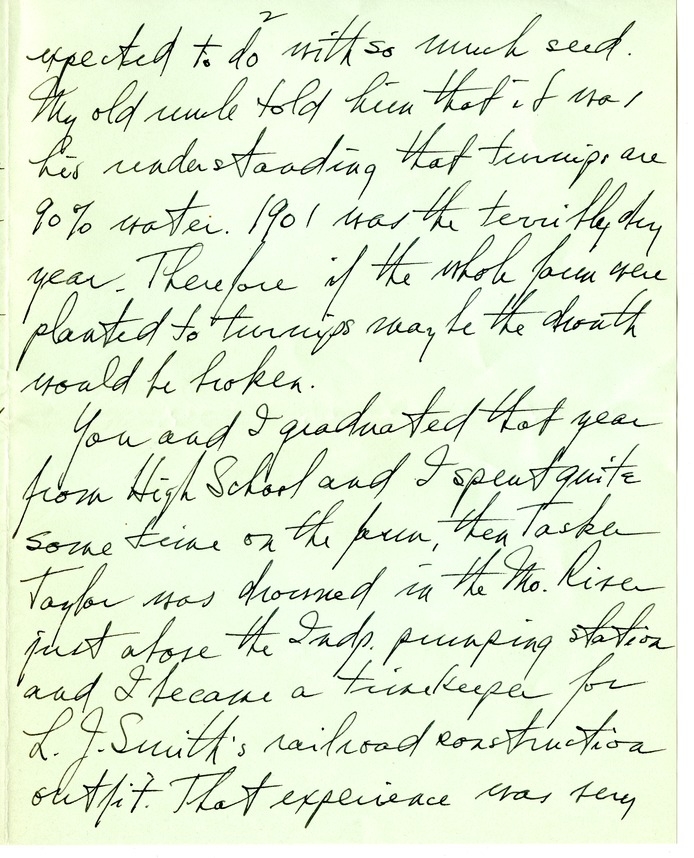 2
expected to do with so much seed.
My old uncle told him that it was
his understanding that turnips are
90% water. 1901 was the terribly dry
year. Therefore if the whole farm were
planted to turnips maybe the drouth
would be broken.
You and I graduated that year
from High School and I spent quite
some time on the farm, then Tasker
Taylor was drowned in the Mo. River
just above the Indp. pumping station
and I became a timekeeper for
L. J. Smith's railroad construction
outfit. That experience was very